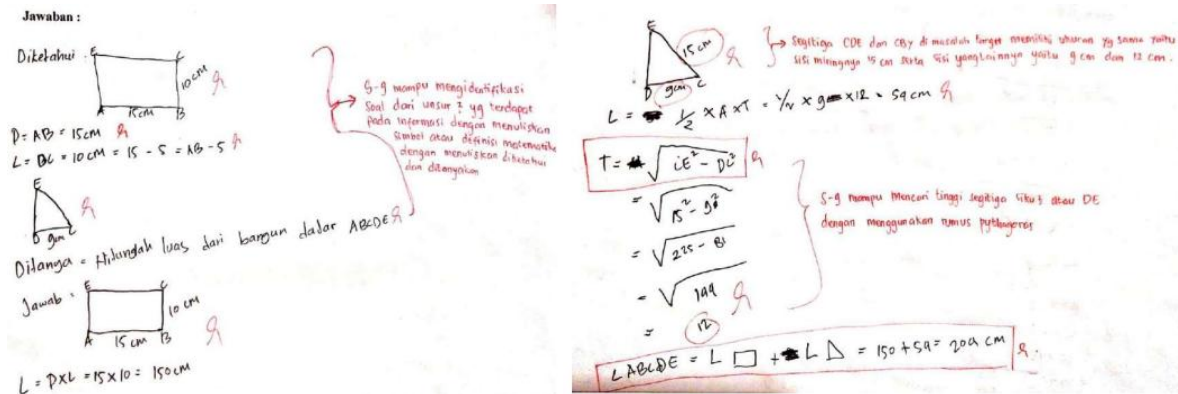 Jawaban :
Diketahui :
E C
10 cm
A 15cm B
P = AB = 15cm
L = BC = 10cm = 15 - 5 = AB - 5
E
D 9cm C
Ditanya = Hitunglah luas dari bangun datar ABCDE
Jawab =
E C
10 cm
A 15 cm B
L = P X L = 15 x 10 = 150 cm
S-9 mampu mengidentifikasi
Soal dari unsur² yg terdapat
pada informasi dengan menuliskan
simbol atau definisi matematika
dengan menuliskan diketahui
dan ditanyakan
E
15 cm
D 9cm C
Segitiga CDE dan CBY di masalah target memiliki ukuran yg sama yaitu
sisi miringnya 15 cm serta sisi yang lainnya yaitu 9 cm dan 12 cm.
L = 1/2 x A x T = 1/2 x 9 x 12 = 54 cm
T = √CE² - DC²
= √15² - 9²
= √225 - 81
= √144
= 12
S-9 mampu mencari tinggi segitiga siku² atau DE
dengan menggunakan rumus pythagoras
L ABCDE = L □ + L △ = 150 + 54 = 204 cm